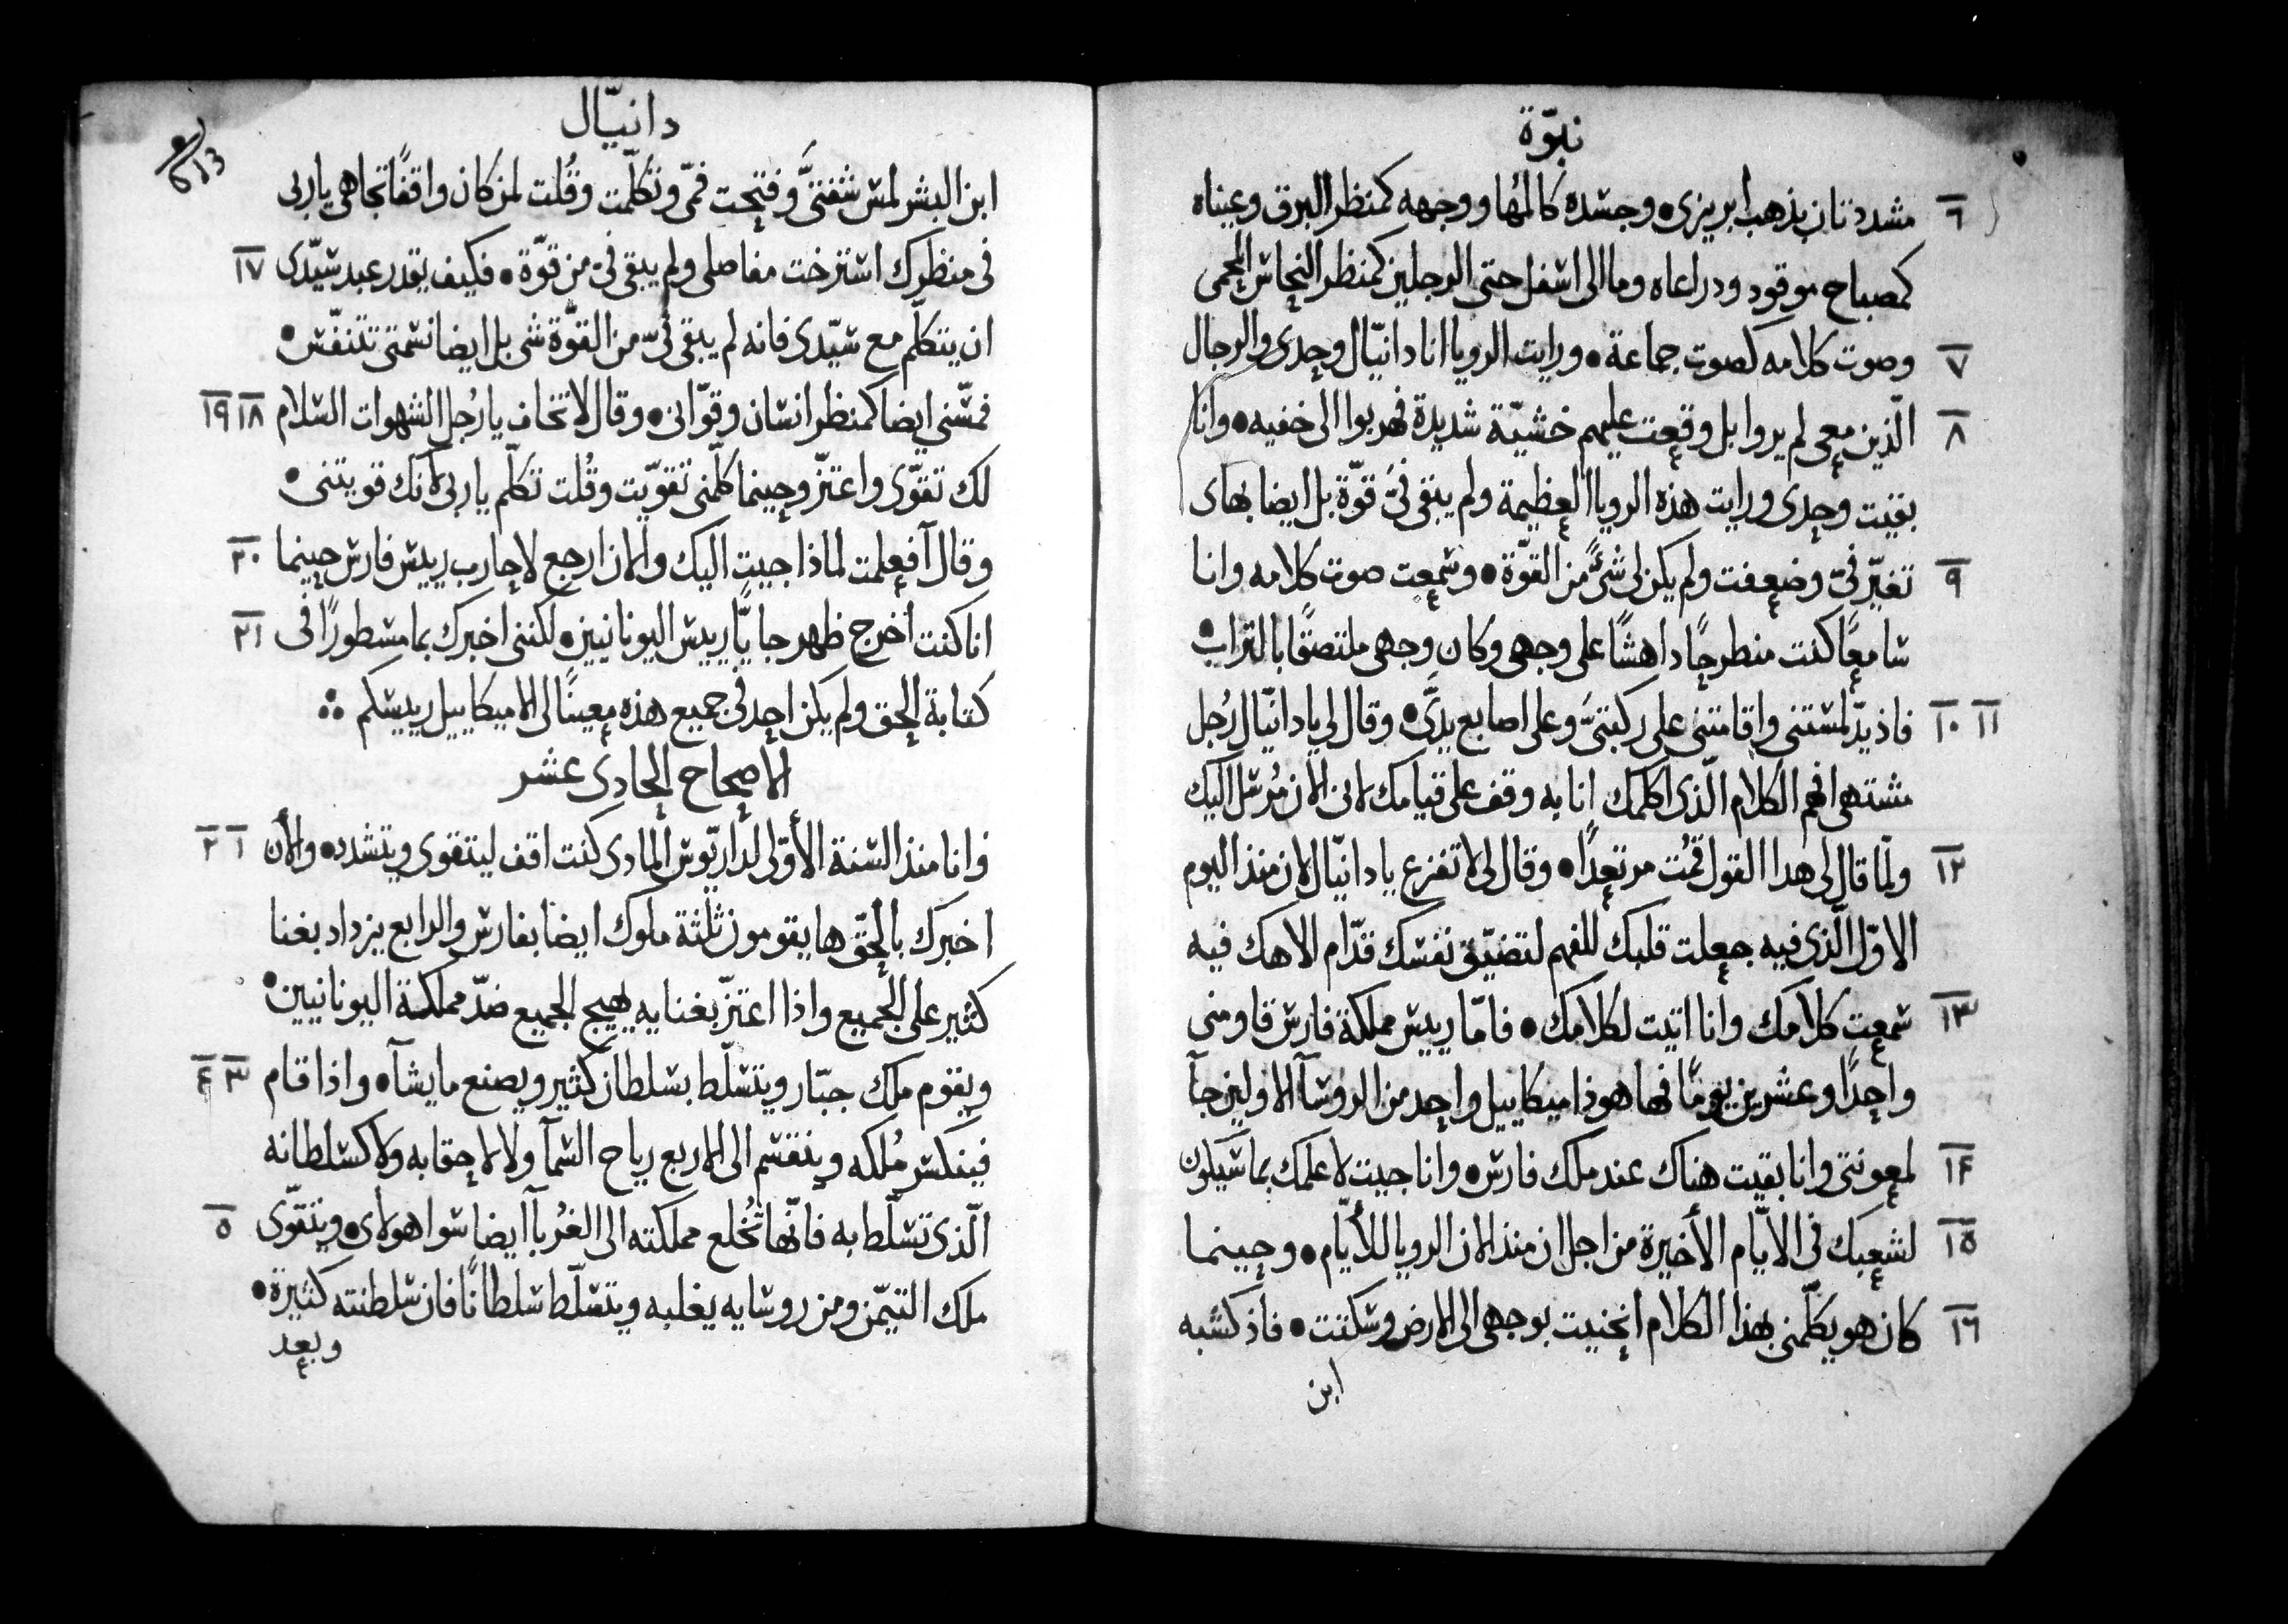 نبوّة
٦ مشددتان بذهب ابريزى • وجسده كالمُها ووجهه كمنظر البرق وعيناه
كمصباح موقود ودراعاه وما الى اسفل حتى الرجلين كمنظر النحاس المحمى
٧ وصوت كلامه كصوت جماعة • ورايت الرويا انا دانيّال وحدى والرجال
٨ الّذين معى لم يروا بل وقعت عليهم خشيّة شديدة فهربوا الى خفيه • وانا
بقيت وحدى ورايت هذه الرويا العظيمة ولم يبقى فىّ قوّة بل ايضا بهاى
٩ تغيّر فىّ وضعفت ولم يكن لى شىٌ من القوّة • وسمعت صوت كلامه وانا
سامعًا كنت منطرحًا داهشًا على وجهى وكان وجهى ملتصقًا بالتراب •
١٠ ١١ فاذ يدّ لمستنى واقامتنى على ركبتىَّ وعلى اصابع يدىَّ • وقال لي يا دانيّال رُجل
مشتهى افهم الكلام الّذى اكلمك انا به وقف على قيامك لانى الان مُرسل اليك
١٢ ولمّا قال لى هدا القول قمُت مرتعدًا • وقال لى لا تفزع يا دانيّال لان منذ اليوم
الاوّل الّذى فيه جعلت قلبك للفهم لتضيّق نفسك قدّام الاهك فيه
١٣ سمعت كلامك وانا اتيت لكلامك • فامّا رييس مملكة فارس قاومنى
واحدًا وعشرين يومًا فها هوذا ميكاييل واحد من الروسآ الاولين جآ
١٤ لمعونتى وانا بقيت هناك عند ملك فارس • وانا جيت لاعلمك بما سيكون
١٥ لشعبك فى الايّام الأخيرة من اجل ان منذ الان الرويا للأيّام • وحينما
١٦ كان هو يكلّمنى بهذا الكلام انحنيت بوجهى الى الارض وسكتت • فاذ كشبه
ابن
دانيّال
ابن البشر لمس شفتىَّ وفتحت فمّى وتكلّمت وقُلت لمن كان واقفًا تجاهى ياربى
فى منظرك استرخت مفاصلى ولم يبقى فىّ من قوّة • فكيف يقدر عبد سيّدى ١٧
ان يتكلّم مع سيّدى فانه لم يبقى فىّ من القوّة شى بل ايضا نسمتى تتنفّس •
فمسّنى ايضا كمنظر انسان وقوّانى • وقال لا تخاف يا رُجل الشهوات السلام ١٨ ١٩
لك تقوّى واعتزّ وحينما كلّمنى تقوّيت وقُلت تكلّم ياربى لانك قويتنى •
وقال آفعلمت لماذا جيت اليك والان ارجع لاحارب رييس فارس حينما ٢٠
انا كنت اخرج ظهر جايًّا رييس اليونانيين • لكننى اخبرك بما مسطورًا فى ٢١
كتابة الحق ولم يكن احد فى جميع هذه معينًا لى الا ميكاييل رييسكم
الاصحاح الحادى عشر
وانا منذ السنة الأوّلى لداريّوس المادى كنت اقف ليتقوى ويتشدد • والأن ١ ٢
اخبرك بالحقّ ها يقومون ثلثة ملوك ايضا بفارس والرابع يزداد بغنا
كثير على الجميع واذا اعتزّ بغنايه يهيج الجميع ضدّ مملكة اليونانيين •
ويقوم ملك جبّار ويتسلّط بسلطان كثير ويصنع ما يشآ • واذا قام ٣ ٤
فينكسر مُلكه وينقسم الى الاربع رياح السمآ ولا لاحقابه ولا كسلطانه
الّذى تسلّط به فانّها تُخلع مملكته الى الغُربآ ايضا سوا هولاى • ويتقوّى ٥
ملك التيّمن ومن روسايه يغلبه ويتسلّط سلطانًا فان سلطنته كثيرة •
وبعد